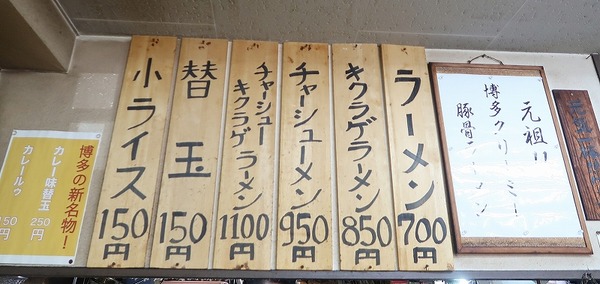 元祖!!
博多クリーミー!
豚骨ラーメン
ラーメン 700円
キクラゲラーメン 850円
チャーシューメン 950円
チャーシュー
キクラゲラーメン 1100円
替玉 150円
小ライス 150円
博多の新名物!
カレー味替玉 250円
カレールゥ 150円